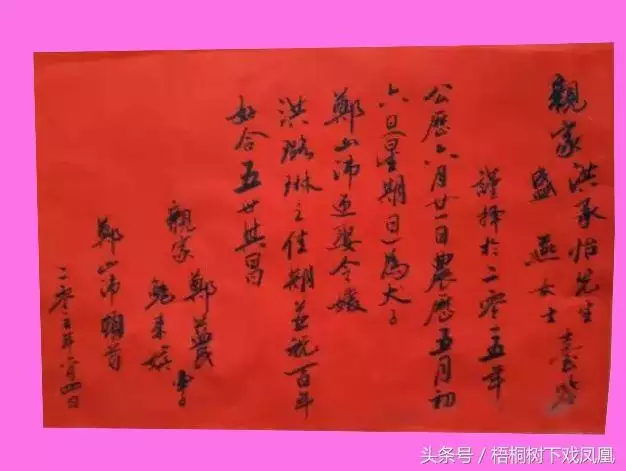 親家洪承怡先生臺鑒
盛燕女士
謹擇於二零一五年
公曆六月廿一日農曆五月初
六日星期日為犬子
鄭山沛迎娶令嬡
洪璐琳之佳期並祝百年
好合五世其昌
親家鄭
鄭山沛頓首
二零一五年二月四日
头条号／梧桐树下戏凤凰